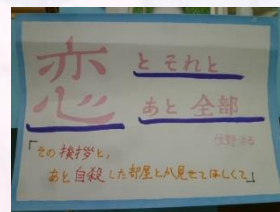 恋 とそれと
あと全部
住野よる
「その挨拶と,
あと自殺した部屋とか見せてほしくて」